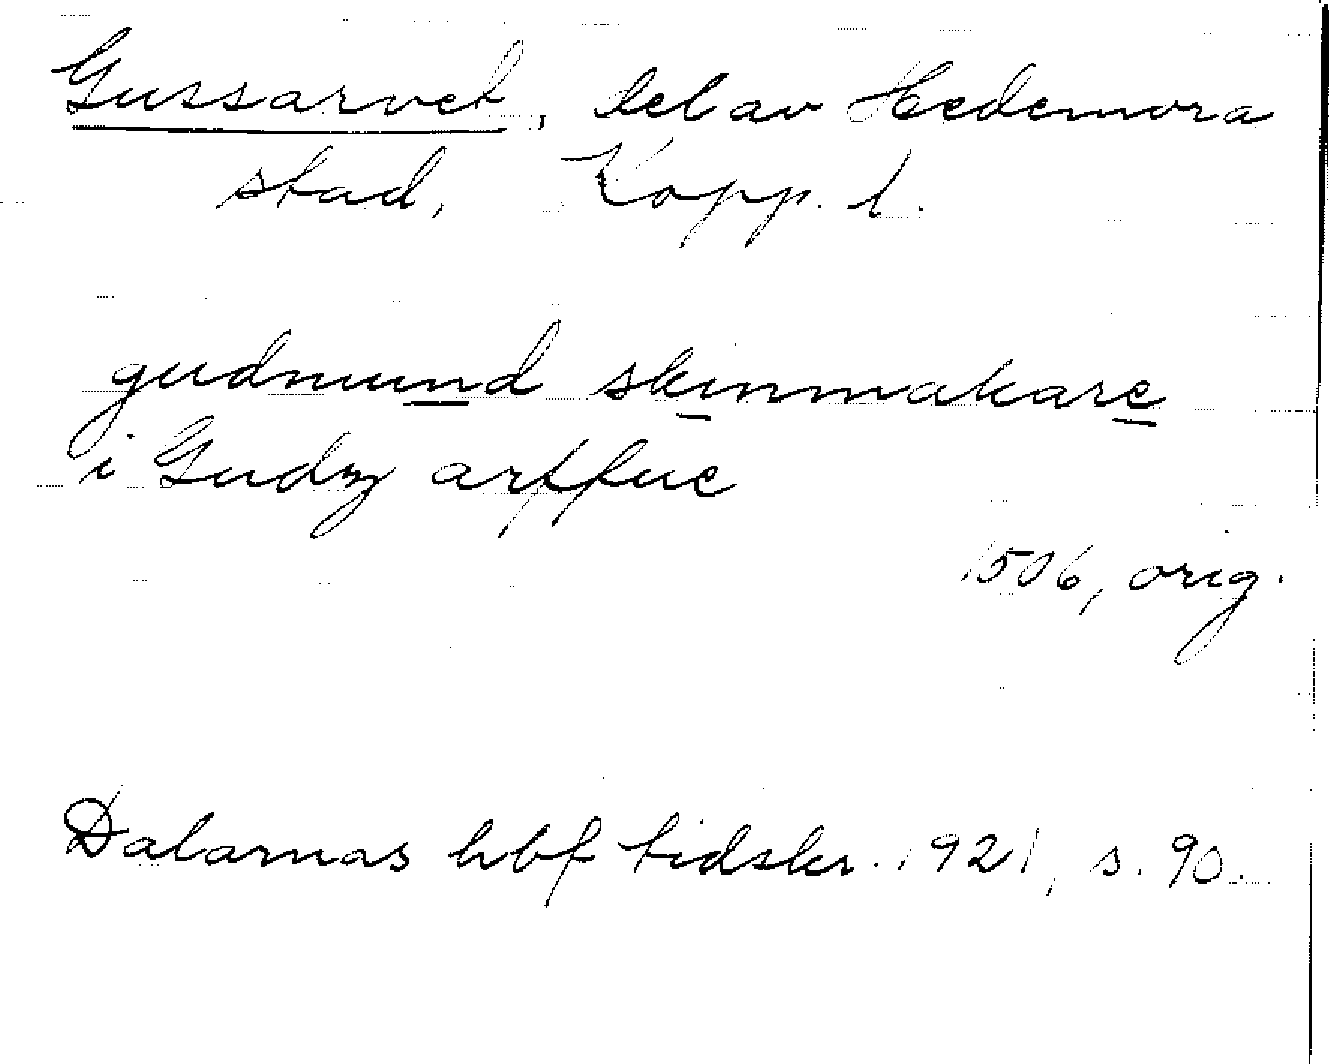 Gussarvet, del av Hedemora
stad, Kopp. l.
gudmund skinmakare
i Gudzs arffue
1506, orig.
Dalarnas hbf tidskr. 1921, s. 90.